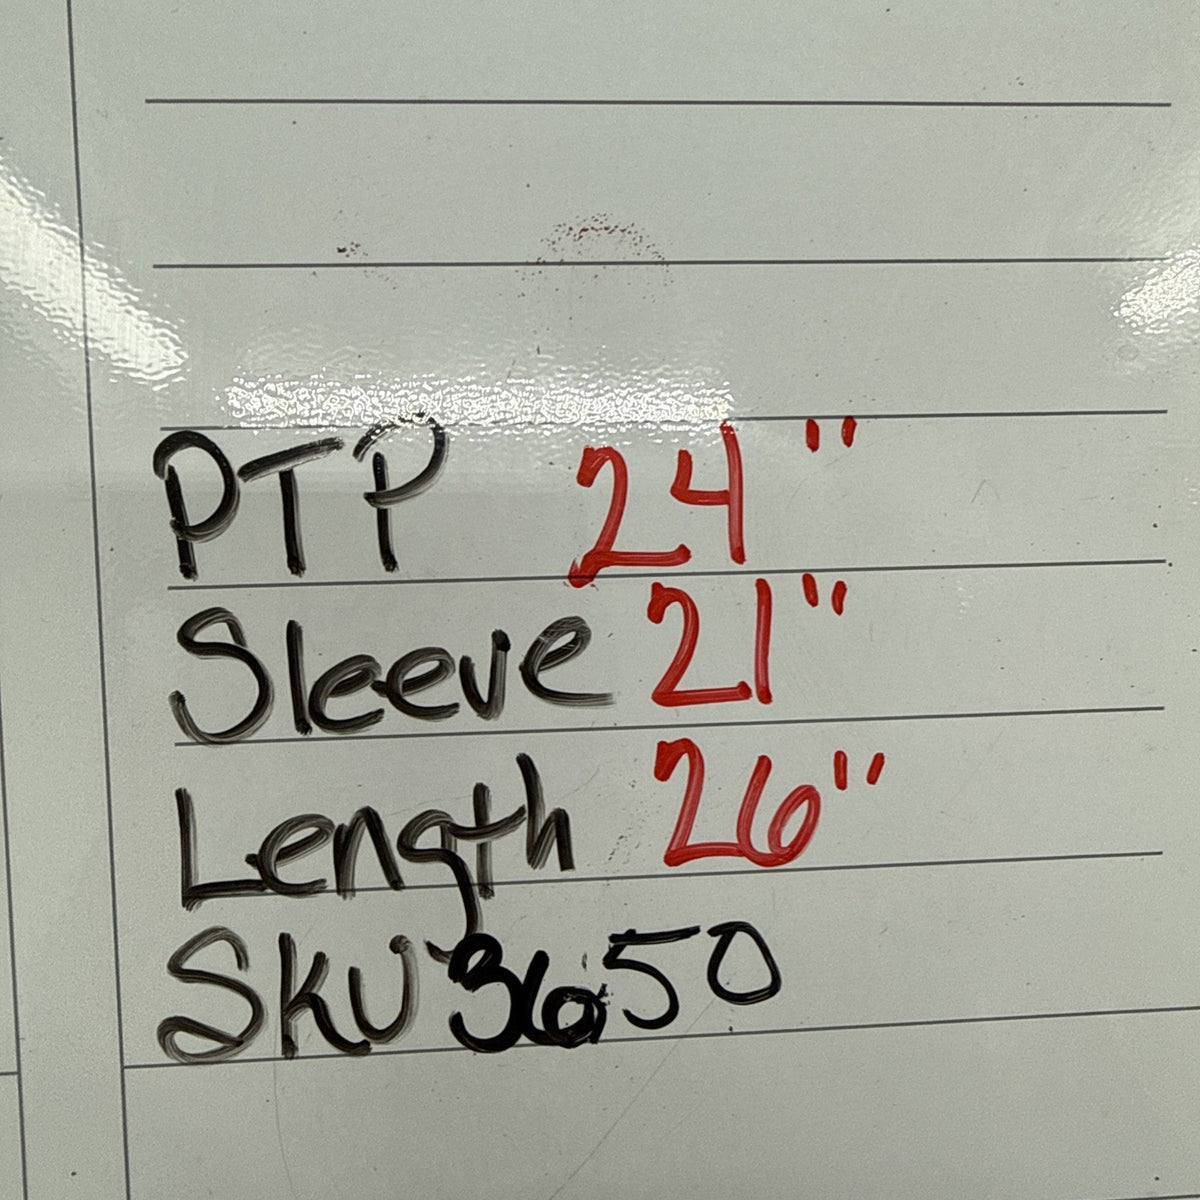 PTP 24"
Sleeve 21"
Length 26"
SKU 3650